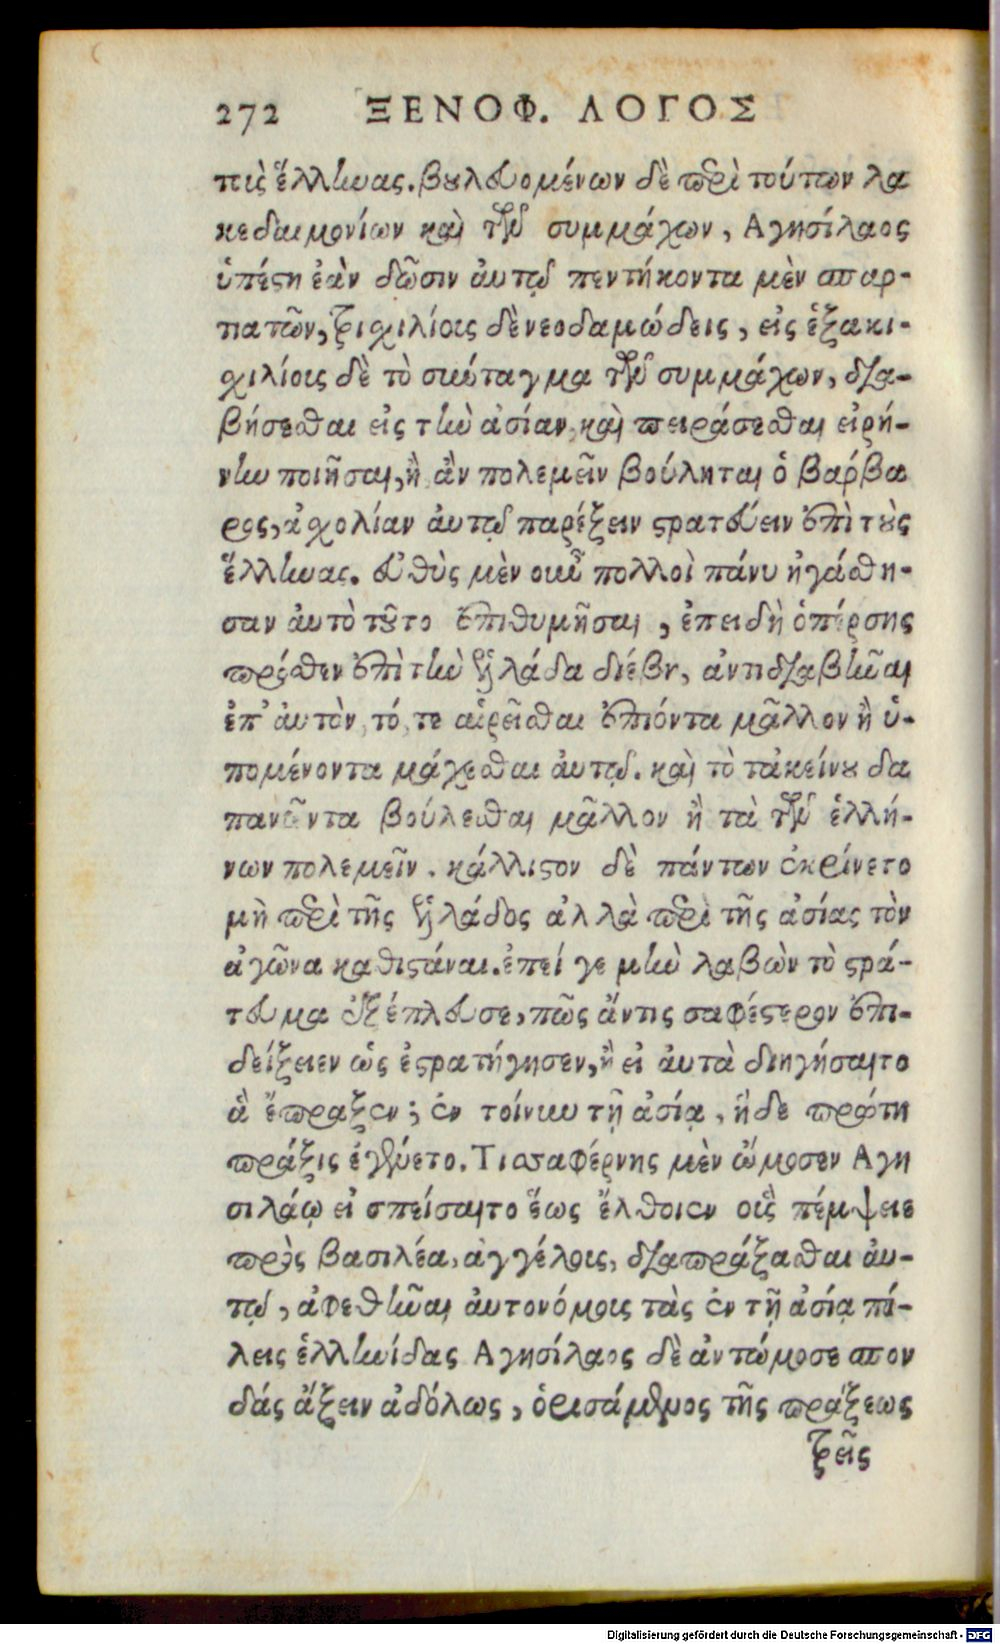 272 ΞΕΝΟΦ. ΛΟΓΟΣ
τοὺς ἕλληνας. βουλευομένων δὲ περὶ τούτων λα
κεδαιμονίων καὶ τῶν συμμάχων, Αγησίλαος
ὑπέστη ἐὰν δῶσιν ἀυτῷ πεντήκοντα μὲν σπαρ-
τιατῶν, τριχιλίοις δὲ νεοδαμώδεις, εἰς ἑξακι-
χιλίοις δὲ τὸ σύνταγμα τῶν συμμάχων, δια-
βήσεσθαι εἰς τὴν ἀσίαν, καὶ πειράσεσθαι εἰρή-
νην ποιῆσαι, ἢ ἂν πολεμεῖν βούληται ὁ βάρβα
ρος, ἀσχολίαν ἀυτῷ παρέξειν στρατεύειν ἐπὶ τοὺς
ἕλληνας. ἐυθὺς μὲν οὖν πολλοὶ πάνυ ἠγάσθη-
σαν ἀυτὸ τοῦτο ἐπιθυμῆσαι, ἐπειδὴ ὁ πέρσης
πρόσθεν ἐπὶ τὴν ἑλλάδα διέβη, ἀντιδιαβῆναι
ἐπ' ἀυτὸν, τό, τε αἱρεῖσθαι ἐπιόντα μᾶλλον ἢ ὑ-
πομένοντα μάχεσθαι ἀυτῷ. καὶ τὸ τἀκείνου δα
πανῶντα βούλεσθαι μᾶλλον ἢ τὰ τῶν ἑλλή-
νων πολεμεῖν. κάλλιστον δὲ πάντων ἐκρίνετο
μὴ περὶ τῆς ἑλλάδος ἀλλὰ περὶ τῆς ἀσίας τὸν
ἀγῶνα καθιστάναι. ἐπεί γε μὴν λαβὼν τὸ στρά-
τευμα ἐξέπλευσε, πῶς ἄντις σαφέστερον ἐπι-
δείξειεν ὡς ἐστρατήγησεν, ἢ εἰ ἀυτὰ διηγήσαιτο
ἃ ἔπραξεν; ἐν τοίνυν τῇ ἀσίᾳ, ἥδε πρώτη
πράξις ἐγένετο. Τισσαφέρνης μὲν ὤμοσεν Αγη
σιλάῳ εἰ σπείσαιτο ἕως ἔλθοιεν οὓς πέμψειε
πρὸς βασιλέα, ἀγγέλοις, διαπράξασθαι ἀυ-
τῷ, ἀφεθῆναι ἀυτονόμοις τὰς ἐν τῇ ἀσίᾳ πό-
λεις ἑλληνίδας Αγησίλαος δὲ ἀντώμοσε σπον
δάς ἄξειν ἀδόλως, ὁρισάμενος τῆς πράξεως
τρεῖς
Digitalisierung gefördert durch die Deutsche Forschungsgemeinschaft - DFG